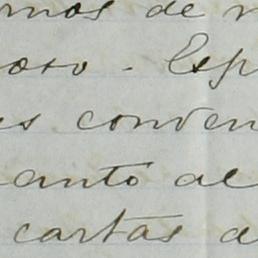 mos de
oso - Esp
es conven
anto al
cartas a